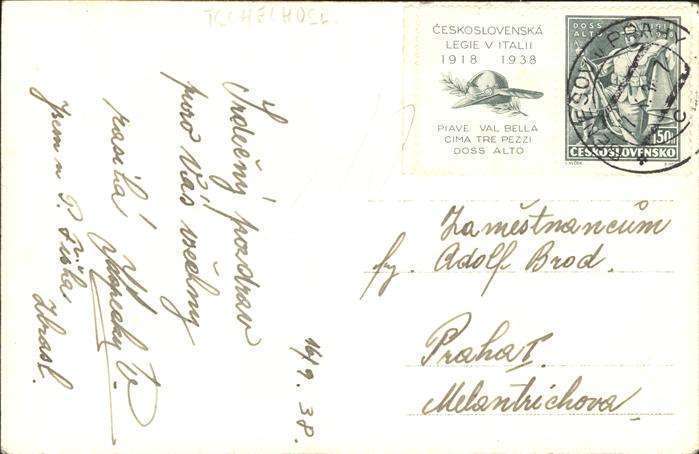 TSCHECHOSL.
ČESKOSLOVENSKÁ
LEGIE V ITALII
1918 1938
PIAVE VAL BELLA
CIMA TRE PEZZI
DOSS ALTO
DOSS
ALTO
1918
1938
1·50
ČESKOSLOVENSKO
Srdečný pozdrav
pro Vás všechny
Jsem u P. Fiška
Zbrasl.
16/9. 38.
Zaměstnancům
fy. Adolf Brod.
Praha I.
Melantrichova